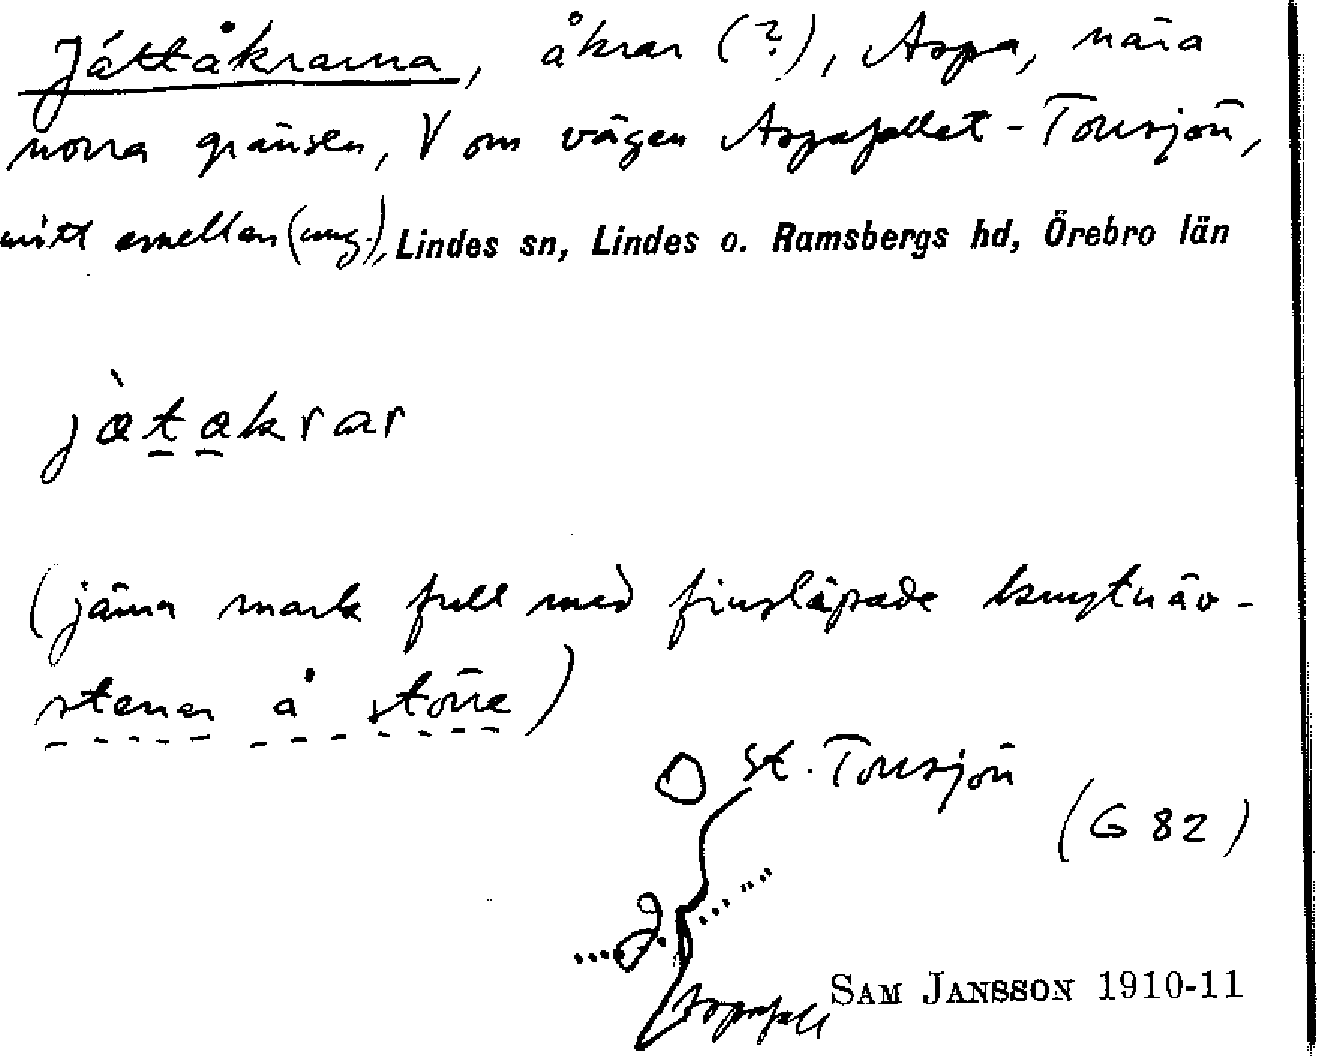 Jättåkrarna, åkrar (?), Aspa, nära
norra gränsen, V om vägen Aspafallet - Torrsjön,
mitt emellan (ung.), Lindes sn, Lindes o. Ramsbergs hd, Örebro län
jätakrar
(jämn mark full med finslipade knytnäv-
stenar å större)
St. Torrsjön
(G 82)
Aspafall
SAM JANSSON 1910-11